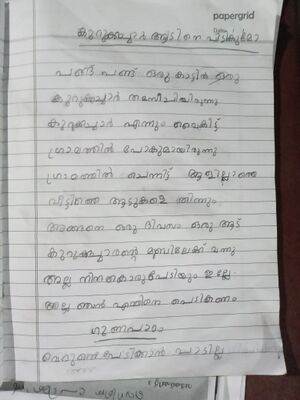 papergrid
കുറുക്കച്ചാർ ആടിനെ പിടിക്കുമോ
പണ്ട് പണ്ട് ഒരു കാട്ടിൽ ഒരു
കുറുക്കച്ചാർ താമസിച്ചിരുന്നു
കുറുക്കച്ചാർ എന്നും വൈകിട്ട്
ഗ്രാമത്തിൽ പോകുമായിരുന്നു
ഗ്രാമത്തിൽ ചെന്നിട്ട് ആളില്ലാത്ത
വീട്ടിലെ ആടുകളെ തിന്നും
അങ്ങനെ ഒരു ദിവസം ഒരു ആട്
കുറുക്കച്ചാരന്റെ മുമ്പിലേക്ക് വന്നു
അല്ല നിനക്കൊരു പേടിയും ഇല്ലേ
അല്ല ഞാൻ എന്തിനെ പേടിക്കണം
ഗുണപാഠം
വെറുതെ പേടിക്കാൻ പാടില്ല